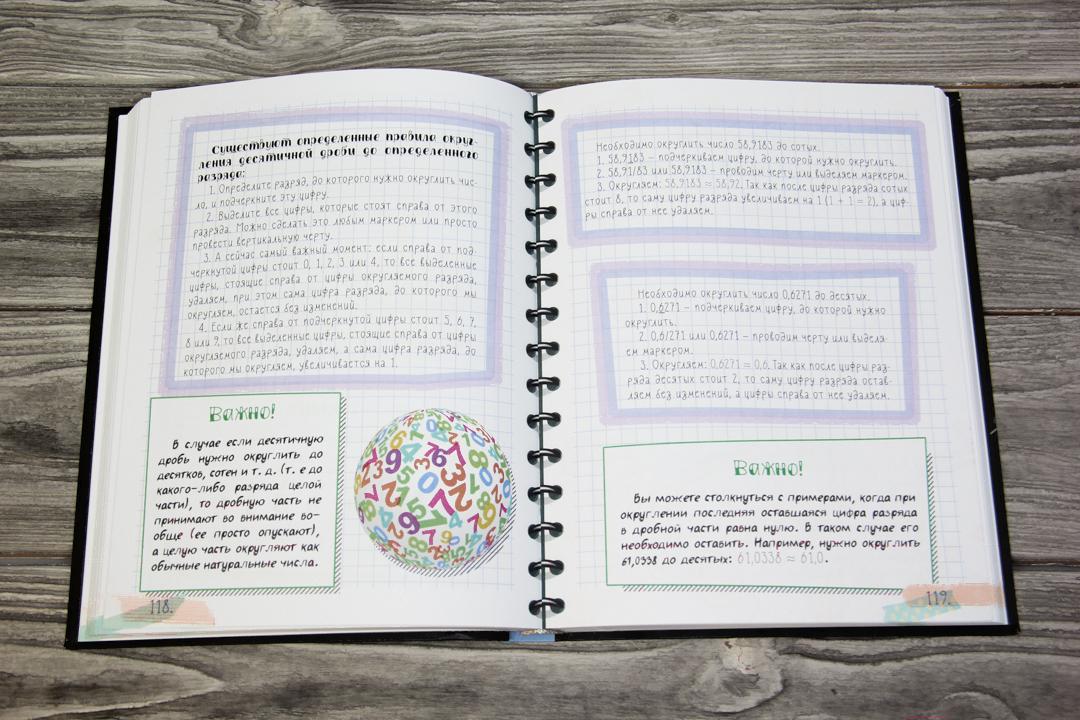 Существуют определенные правила округ-
ления десятичной дроби до определенного
разряда:
1. Определите разряд, до которого нужно округлить чис-
ло, и подчеркните эту цифру.
2. Выделите все цифры, которые стоят справа от этого
разряда. Можно сделать это любым маркером или просто
провести вертикальную черту.
3. А сейчас самый важный момент: если справа от под-
черкнутой цифры стоит 0, 1, 2, 3 или 4, то все выделенные
цифры, стоящие справа от цифры округляемого разряда,
удаляем, при этом сама цифра разряда, до которого мы
округляем, остается без изменений.
4. Если же справа от подчеркнутой цифры стоит 5, 6, 7,
8 или 9, то все выделенные цифры, стоящие справа от цифры
округляемого разряда, удаляем, а сама цифра разряда, до
которого мы округляем, увеличивается на 1.
Важно!
В случае если десятичную
дробь нужно округлить до
десятков, сотен и т. д. (т. е до
какого-либо разряда целой
части), то дробную часть не
принимают во внимание во-
обще (ее просто опускают),
а целую часть округляют как
обычные натуральные числа.
118.
Необходимо округлить число 58,9183 до сотых.
1. 58,9183 – подчеркиваем цифру, до которой нужно округлить.
2. 58,91/83 или 58,9183 – проводим черту или выделяем маркером.
3. Округляем: 58,9183 ≈ 58,92. Так как после цифры разряда сотых
стоит 8, то саму цифру разряда увеличиваем на 1 (1 + 1 = 2), а циф-
ры справа от нее удаляем.
Необходимо округлить число 0,6271 до десятых.
1. 0,6271 – подчеркиваем цифру, до которой нужно
округлить.
2. 0,6/271 или 0,6271 – проводим черту или выделя-
ем маркером.
3. Округляем: 0,6271 ≈ 0,6. Так как после цифры раз-
ряда десятых стоит 2, то саму цифру разряда остав-
ляем без изменений, а цифры справа от нее удаляем.
Важно!
Вы можете столкнуться с примерами, когда при
округлении последняя оставшаяся цифра разряда
в дробной части равна нулю. В таком случае его
необходимо оставить. Например, нужно округлить
61,0338 до десятых: 61,0338 ≈ 61,0.
119.